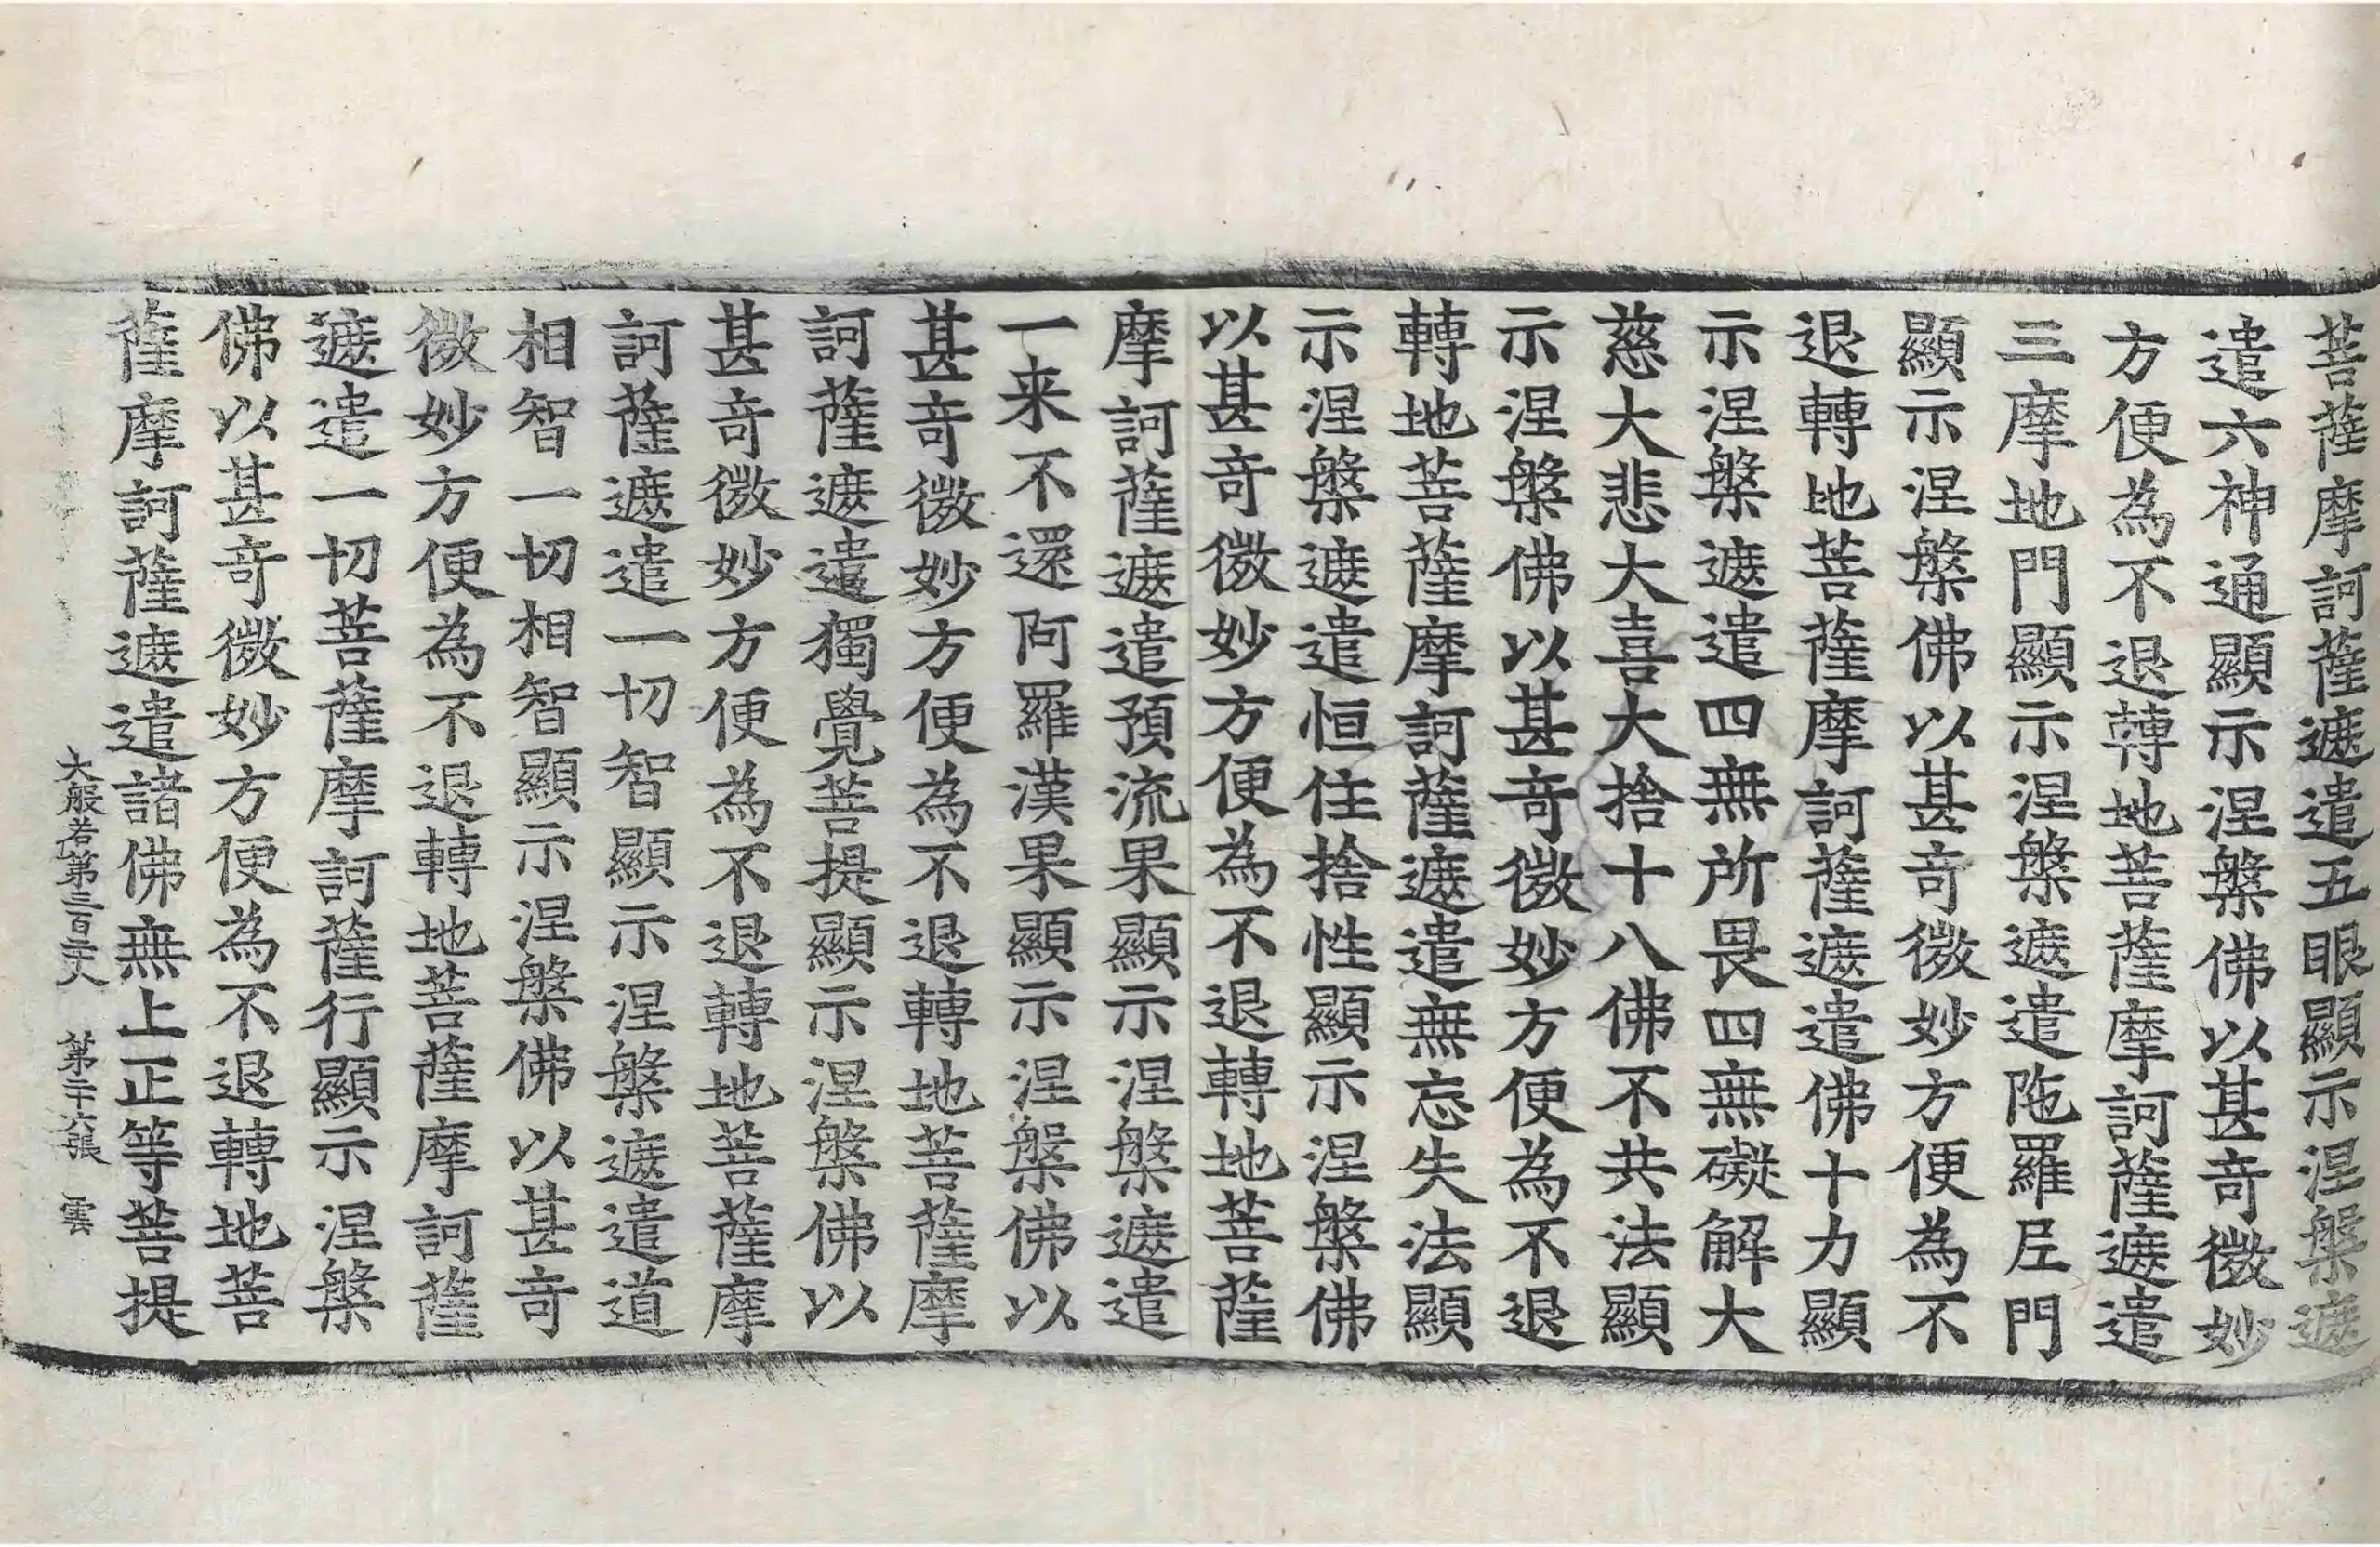 菩薩摩訶薩遮遣五眼顯示涅槃遮
遣六神通顯示涅槃佛以甚奇微妙
方便為不退轉地菩薩摩訶薩遮遣
三摩地門顯示涅槃遮遣陁羅尼門
顯示涅槃佛以甚奇微妙方便為不
退轉地菩薩摩訶薩遮遣佛十力顯
示涅槃遮遣四無所畏四無礙解大
慈大悲大喜大捨十八佛不共法顯
示涅槃佛以甚奇微妙方便為不退
轉地菩薩摩訶薩遮遣無忘失法顯
示涅槃遮遣恒住捨性顯示涅槃佛
以甚奇微妙方便為不退轉地菩薩
摩訶薩遮遣預流果顯示涅槃遮遣
一来不還阿羅漢果顯示涅槃佛以
甚奇微妙方便為不退轉地菩薩摩
訶薩遮遣獨覺菩提顯示涅槃佛以
甚奇微妙方便為不退轉地菩薩摩
訶薩遮遣一切智顯示涅槃遮遣道
相智一切相智顯示涅槃佛以甚奇
微妙方便為不退轉地菩薩摩訶薩
遮遣一切菩薩摩訶薩行顯示涅槃
佛以甚奇微妙方便為不退轉地菩
薩摩訶薩遮遣諸佛無上正等菩提
大般若第三百二十八 第二十六張 雲